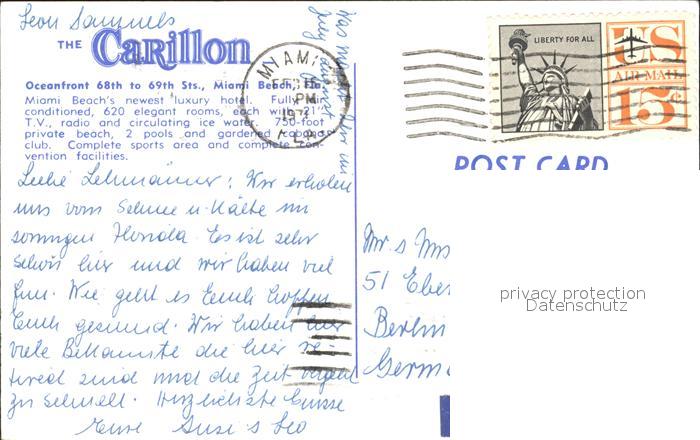 Leon Samuels
THE Carillon
Oceanfront 68th to 69th Sts., Miami Beach, Fla.
Miami Beach's newest luxury hotel. Fully
conditioned, 620 elegant rooms, each with 21"
T.V., radio and circulating ice water. 750-foot
private beach, 2 pools and gardened cabana
club. Complete sports area and complete con-
vention facilities.
MIAMI
PM
197
FLA
LIBERTY FOR ALL
US
AIR MAIL
15c
POST CARD
Liebe Lehmänner: Wir erholen
uns vom Schnee u. Kälte im
sonnigen Florida. Es ist sehr
schön hier und wir haben viel
fun. Wie geht es Euch hoffen
Euch gesund. Wir haben hier
viele Bekannte die hier re-
tired sind und die Zeit vergeht
zu schnell. Herzlichste Grüsse
Eure Susi & Leo
Mr & Mrs
51 Eber
Berlin
Germ
privacy protection
Datenschutz